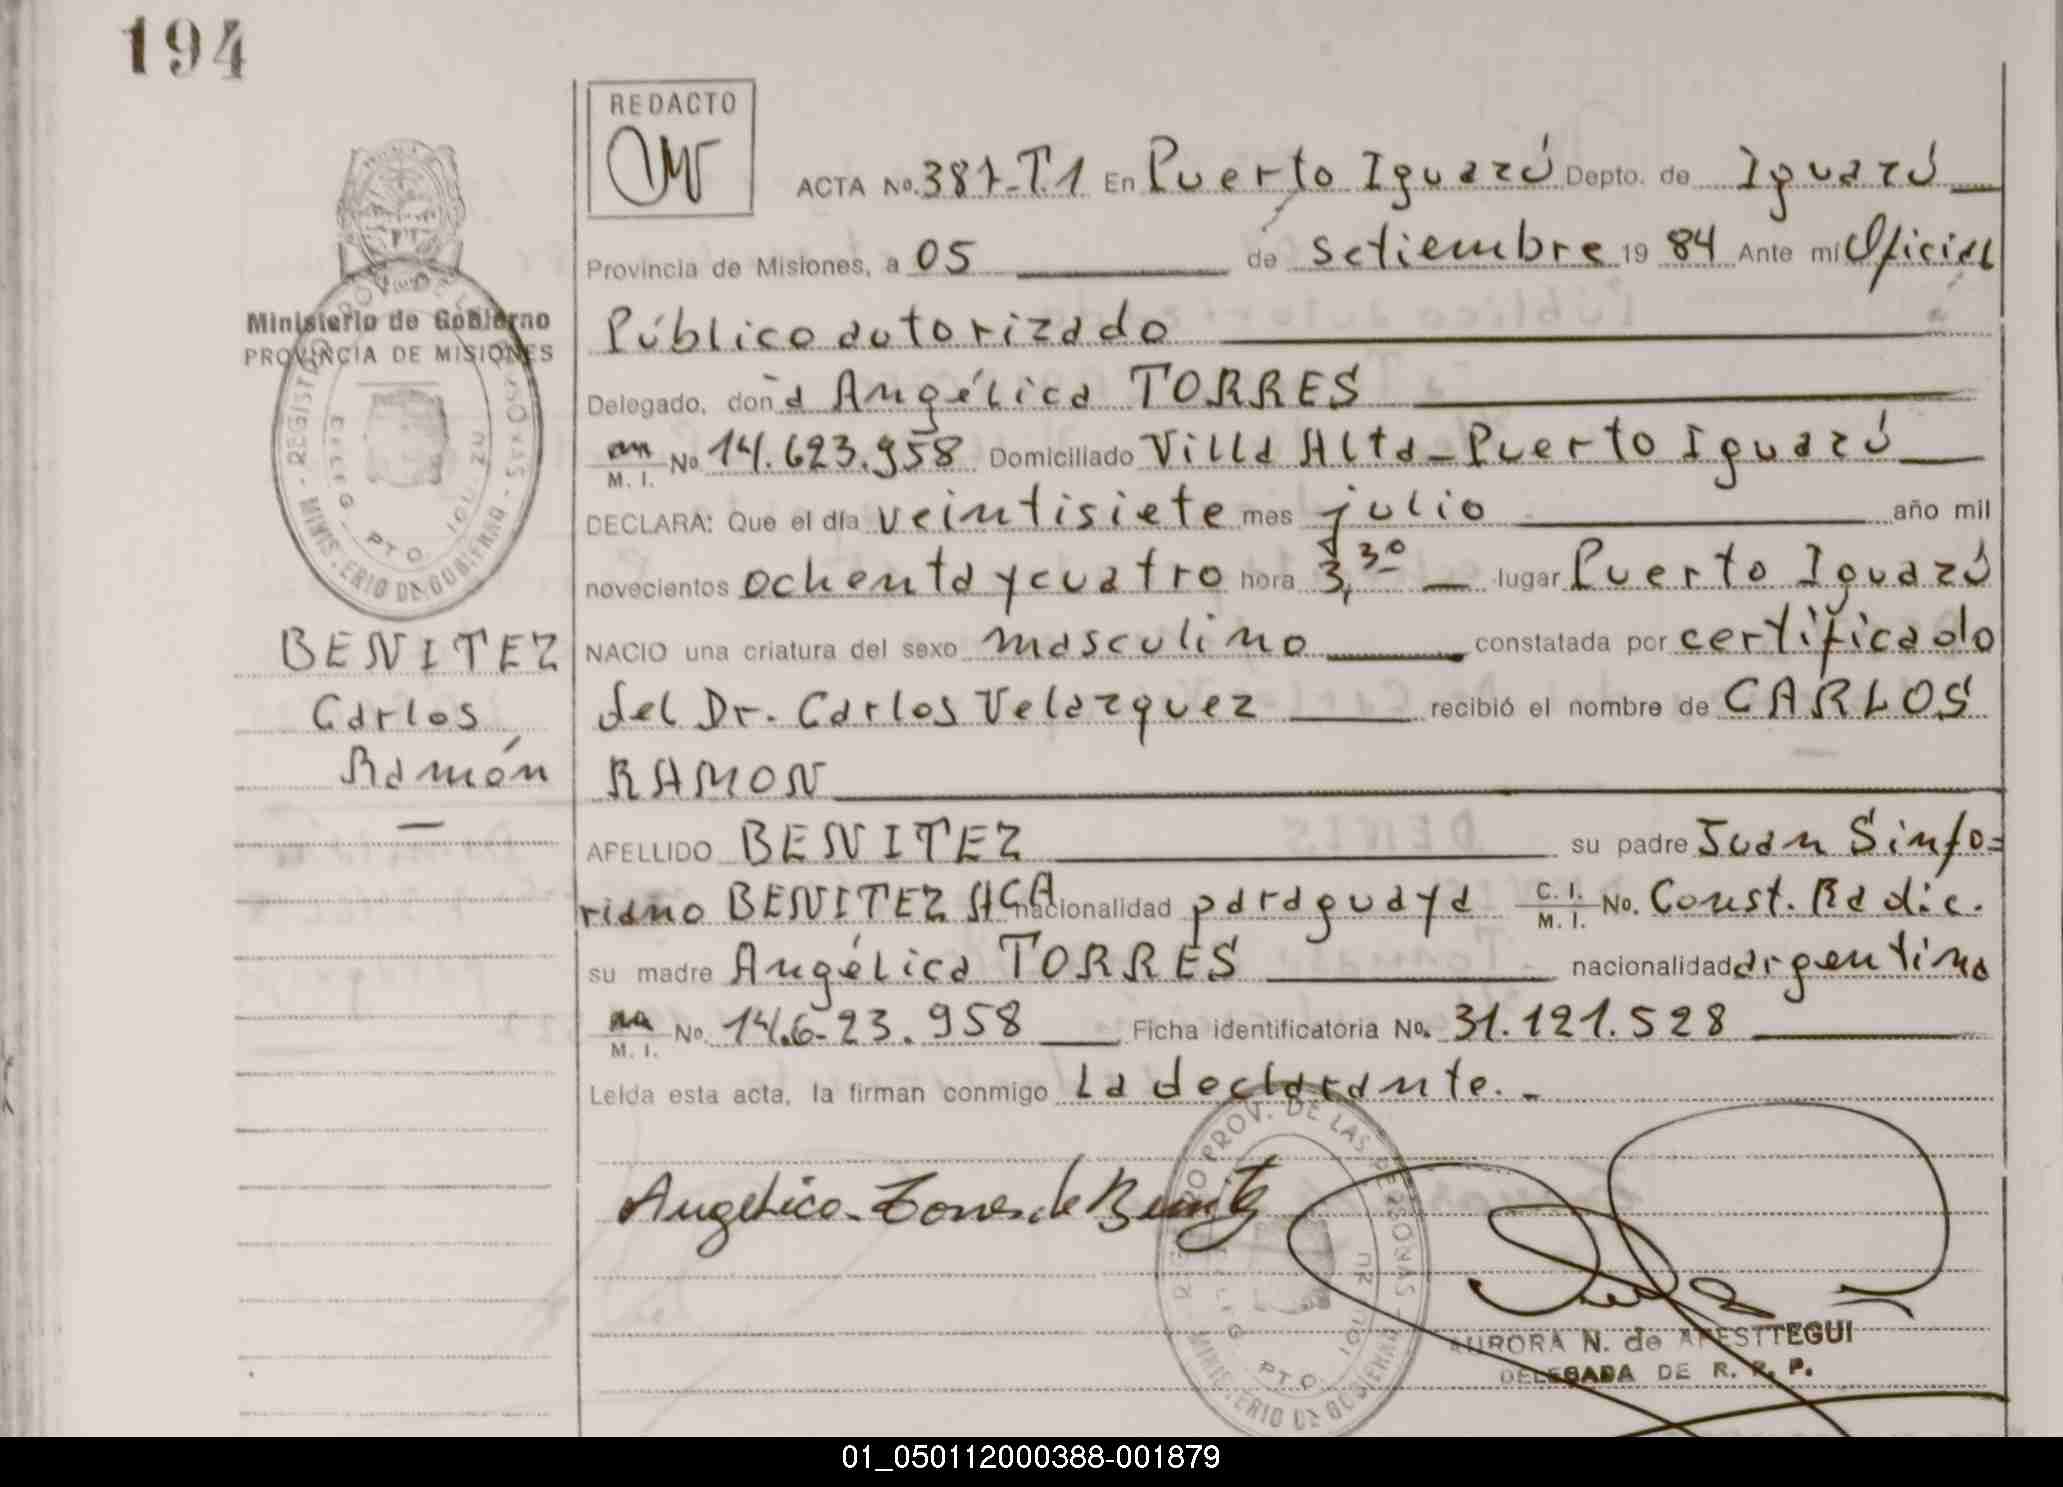 194
REDACTO
ACTA No. 387-T.1 En Puerto Iguazú Depto. de Iguazú
Provincia de Misiones, a 05 de setiembre 19 84 Ante mi Oficial
Público autorizado
Delegado, doña Angélica TORRES
M. I. No 14.623.958 Domiciliado Villa Alta - Puerto Iguazú
DECLARA: Que el día veintisiete mes julio año mil
novecientos ochenta y cuatro hora 3,30 lugar Puerto Iguazú
NACIO una criatura del sexo masculino constatada por certificado
del Dr. Carlos Velazquez recibió el nombre de CARLOS
RAMON
APELLIDO BENITEZ su padre Juan Sinfo=
riano BENITEZ ACA nacionalidad paraguaya C. I. M. I. No. Const. Radic.
su madre Angélica TORRES nacionalidad argentina
M. I. No. 14.6-23.958 Ficha identificatoria No. 31.121.528
Leída esta acta, la firman conmigo la declarante.-
Angelica Torres de Benitez
AURORA N. de APESTTEGUI
DELEGADA DE R. R. P.
Ministerio de Gobierno
PROVINCIA DE MISIONES
REGISTRO PROV. DE LAS PERSONAS - MINISTERIO DE GOBIERNO
DELEG. PTO. IGUAZU
BENITEZ
Carlos
Ramón
REGISTRO PROV. DE LAS PERSONAS - MINISTERIO DE GOBIERNO
DELEG. PTO. IGUAZU
01_050112000388-001879